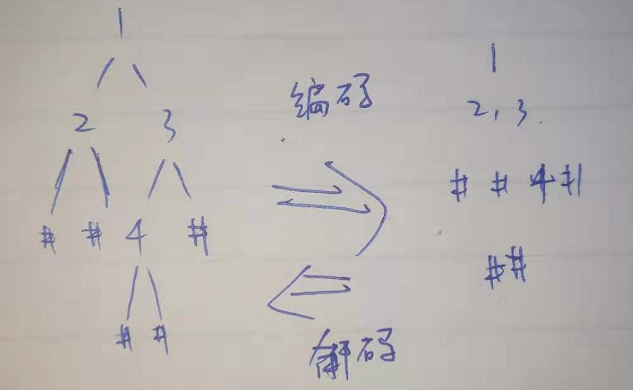 1
2 3
# # 4 #
# #
编码
解码
1
2, 3.
# # 4 #
# #